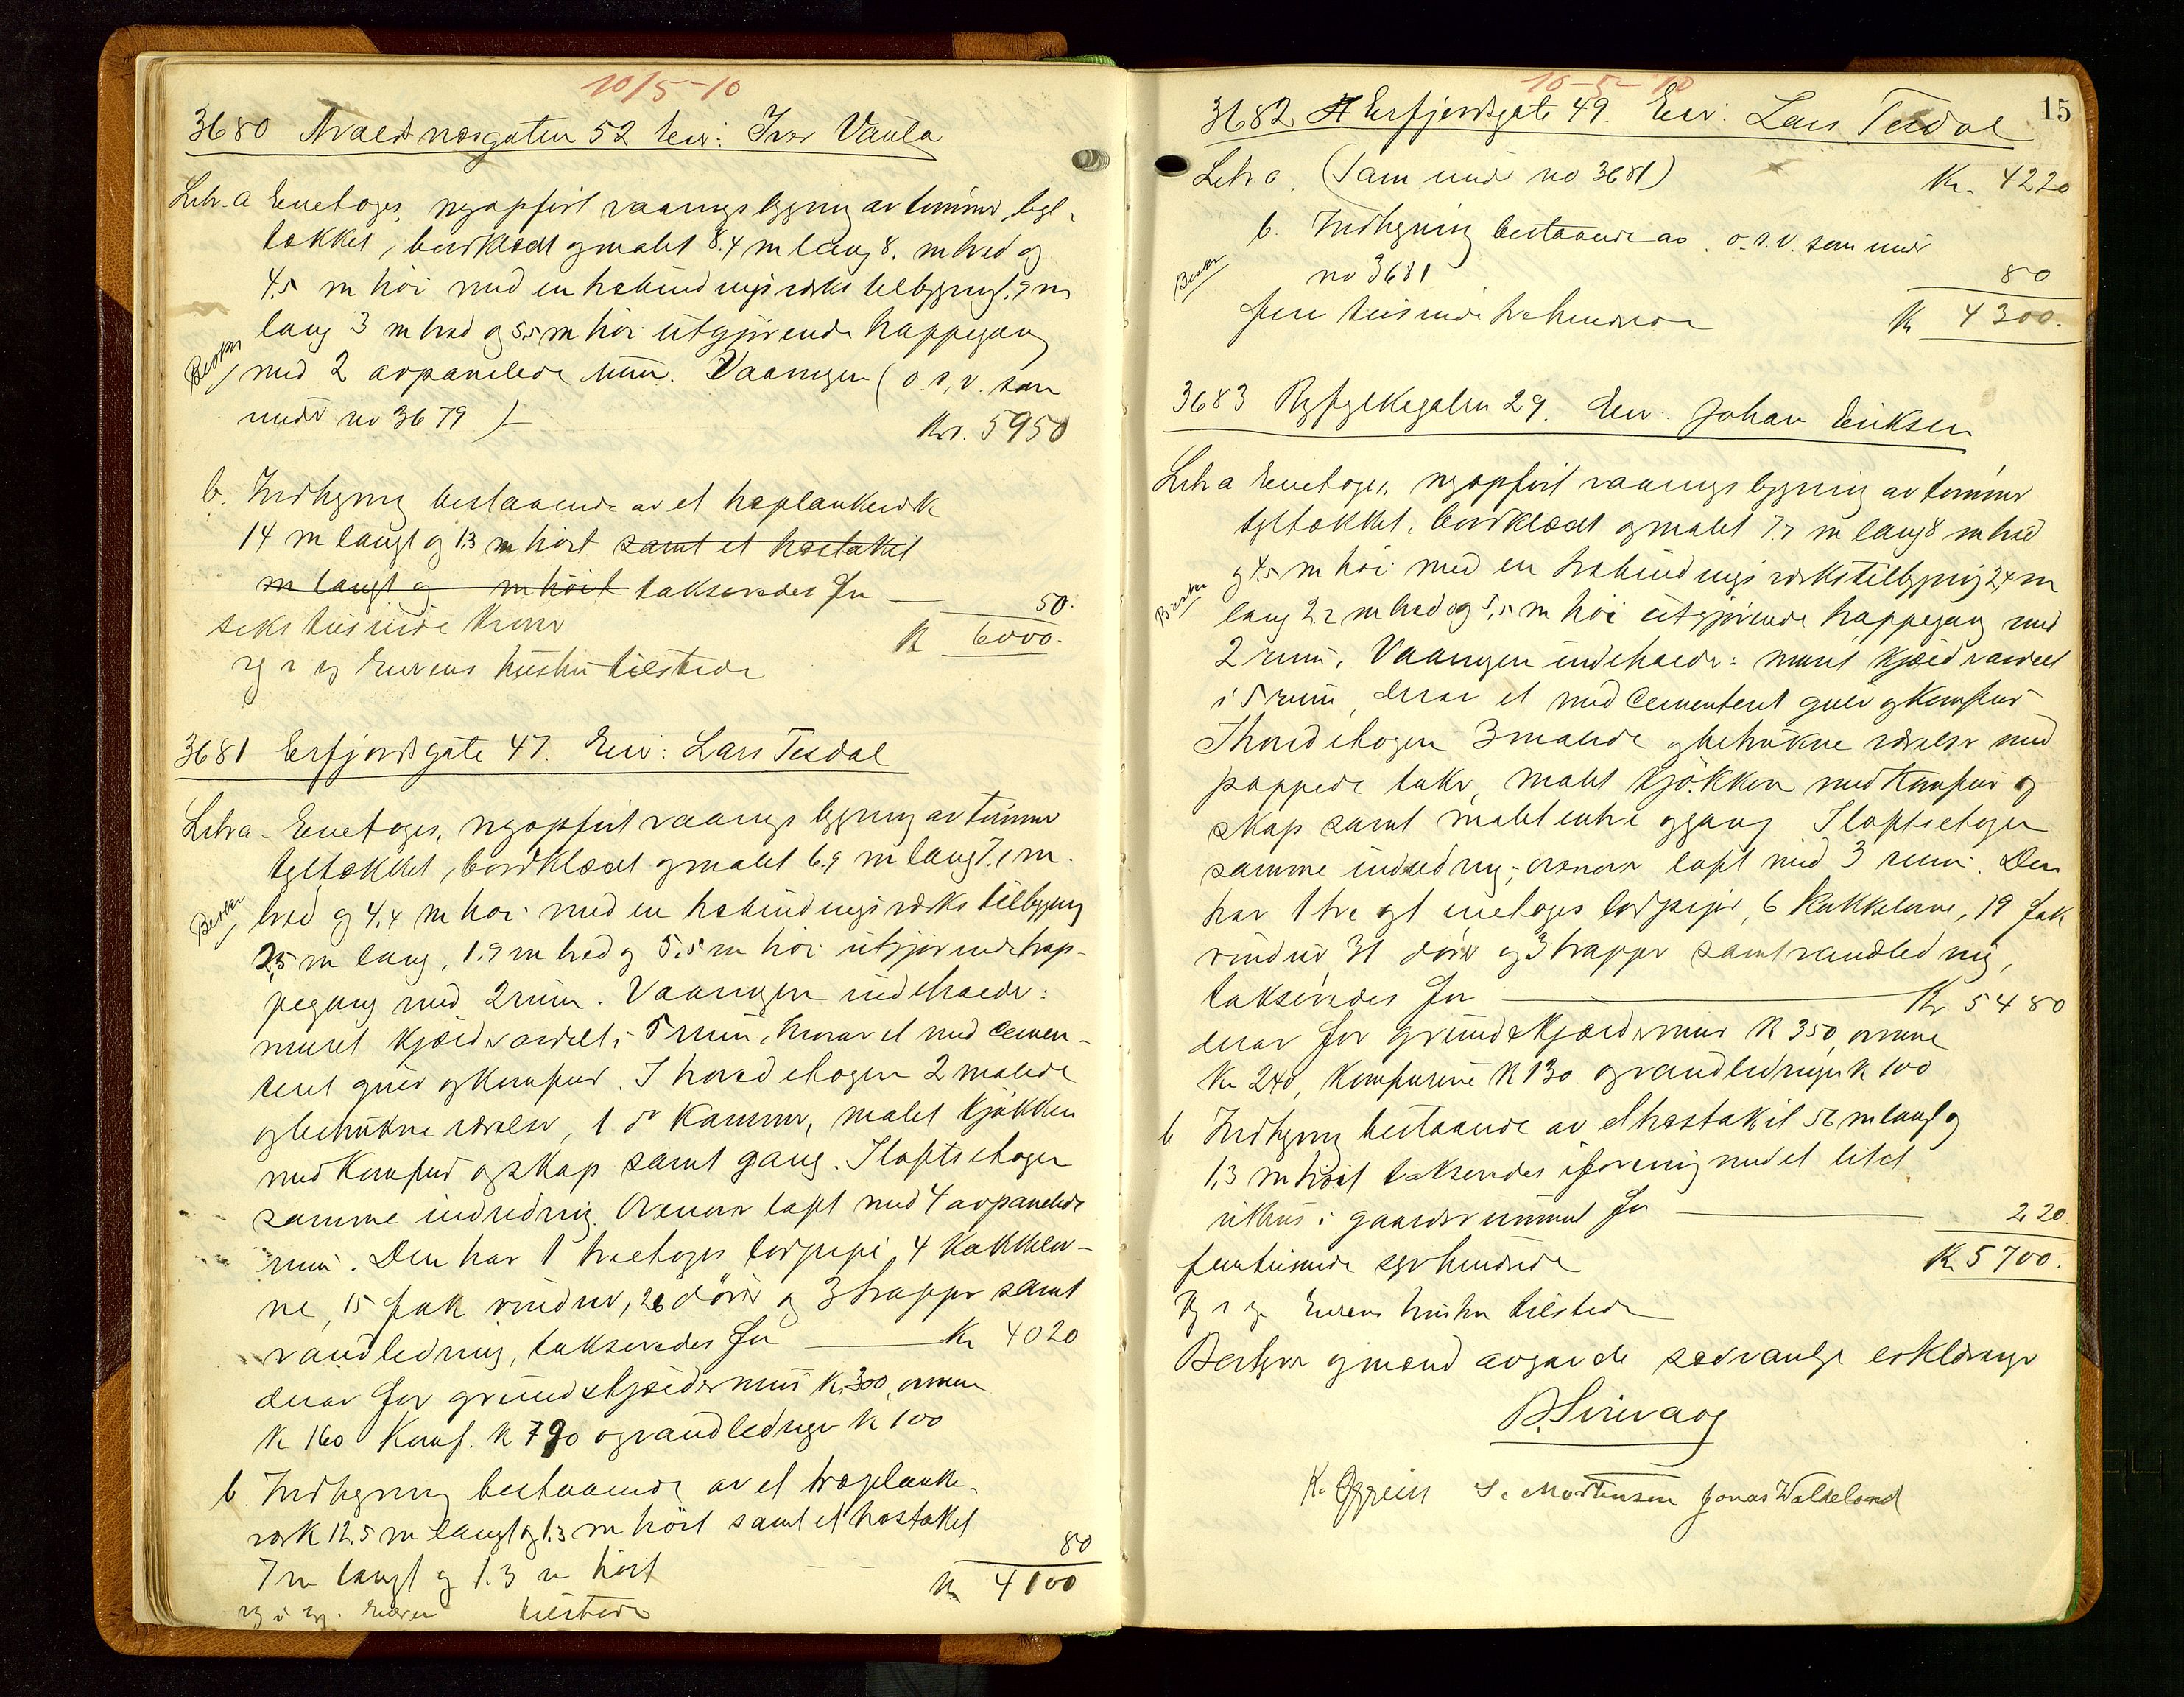 10/5-10
3680 Avaldsnesgaten 52 Eier: Iver Vaula
Litr. a Eenetages, nyopført vaaningsbygning av tømmer, tegl-
tækket, bordklædt og malet 8.4 m lang 8. m bred og
4.5 m høi med en trebindingsverks tilbygning 1.9 m
lang 3 m bred og 5.5 m høi utgjørende trappegang
med 2 avpanelede rum. Vaaningen (o.s.v. som
under no 3679)
Kr. 5950
b. Indhegning bestaaende av et træplankeverk
14 m langt og 1.3 m høit samt et træstakit
m langt og m høit takseredes for
50.
seks tusinde kroner
K 6000.
Eierens hustru tilstede
3681 Erfjordsgate 47. Eier: Lars Tesdal
Litra - Eenetages, nyopført vaaningsbygning av tømmer
tegltækket, bordklædt og malet 6.9 m lang 7.1 m.
bred og 4.4 m høi med en trebindingsverks tilbygning
2,5 m lang, 1.9 m bred og 5.5 m høi utgjørende trap-
pegang med 2 rum. Vaaningen indeholder:
muret kjælder avdelt i 5 rum, hvorav et med cemen-
teret gulv og komfur. I hovedetagen 2 malede
og betrukne værelser, 1 do kammer, malet kjøkken
med komfur og skap samt gang. I loftsetagen
samme indredning. Ovenover loft med 4 avpanelede
rum. Den har 1 treetages ildpipe, 4 kakkelov-
ne, 15 fak vinduer, 26 døre og 3 trapper samt
vandledning, takseredes for Kr 4020
derav for grund & kjældermur K. 300, ovnene
K 160 Komf. K 790 og vandledninger K 100
b. Indhegning bestaaende av et træplanke-
verk 12.5 m langt og 1.3 m høit samt et træstakit
7 m langt og 1.3 m høit
80
K 4100
Eieren tilstede
Besktr
Besktr
10-5-10
15
3682 Erfjordsgate 49. Eier: Lars Tesdal
Litr a. (Som under no 3681)
Kr. 4220
b. Indhegning bestaaende av o.s.v. som under
no 3681
80
Besktr
fire tusinde trehundrede
K 4300.
3683 Ryfylkegaten 29. Eier: Johan Eriksen
Litr a Eenetages, nyopført vaaningsbygning av tømmer
tegltækket, bordklædt og malet 7.7 m lang 8 m bred
og 4.5 m høi med en trebindingsverkstilbygning 2,4 m
Besktr
lang 2.2 m bred og 5,5 m høi utgjørende trappegang med
2 rum. Vaaningen indeholder: muret kjælder avdelt
i 5 rum, derav et med cementeret gulv og komfur
I hovedetagen 3 malede og betrukne værelser med
pappede taker, malet kjøkken med komfur og
skap samt malet entre og gang I loftsetagen
samme indredning; ovenover loft med 3 rum. Den
har 1 tre og 1 enetages ildpiper, 6 kakkelovne, 19 fak
vinduer, 31 dører og 3 trapper samt vandledning,
takseredes for Kr 5480
derav for grund & kjældermur K 350, ovnene
Kr 240, komfurene K 130 og vandledninger K 100
b Indhegning bestaaende av et træstakit 56 m langt og
1,3 m høit takseredes i forening med et litet
uthus i gaardsrummet for
220.
femtusinde syvhundrede
K. 5700.
Eierens hustru tilstede
Bestyrer og mænd avgav de sædvanlige erklæringer
B. Svivaag
K. Egreiss S. Mortensen Jonas Waldeland